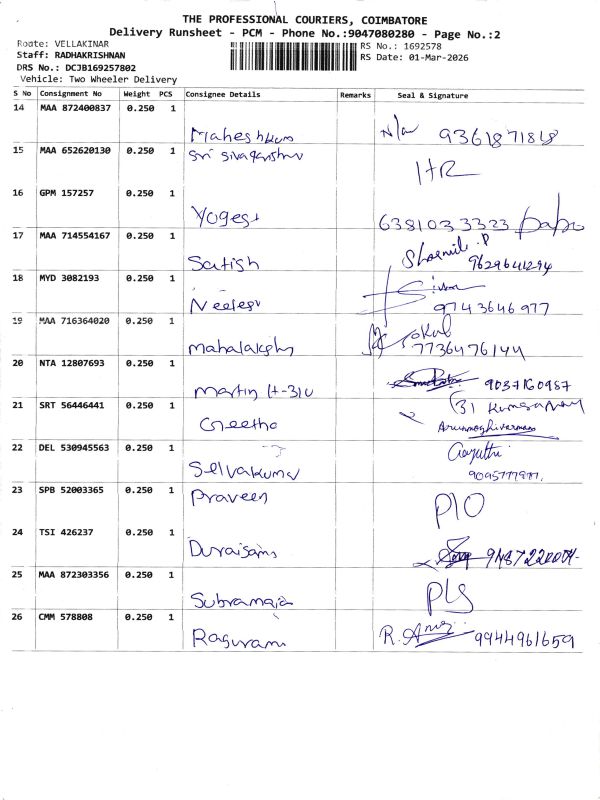 THE PROFESSIONAL COURIERS, COIMBATORE
Delivery Runsheet - PCM - Phone No.:9047080280 - Page No.:2
Route: VELLAKINAR
RS No.: 1692578
Staff: RADHAKRISHNAN
RS Date: 01-Mar-2026
DRS No.: DCJB169257802
Vehicle: Two Wheeler Delivery
S No Consignment No Weight PCS Consignee Details Remarks Seal & Signature
14 MAA 872400837 0.250 1
Maheshkum N/a 9361871818
15 MAA 652620130 0.250 1
Sri
HR
16 GPM 157257 0.250 1
Yogesh 6381033323 babu
17 MAA 714554167 0.250 1
Satish Sharmila.P 9629641294
18 MYD 3082193 0.250 1
Neelesh Siva 9743646977
19 MAA 716364020 0.250 1
Mahalakshm Gokul 7736476144
20 NTA 12807693 0.250 1
Martin H-310 9037160987
21 SRT 56446441 0.250 1
Geetha
22 DEL 530945563 0.250 1
Selvakumar Gayathri
23 SPB 52003365 0.250 1
Praveen P10
24 TSI 426237 0.250 1
Duraisami
25 MAA 872303356 0.250 1
Subramaia
26 CMM 578808 0.250 1
Raguram R. 9944961659